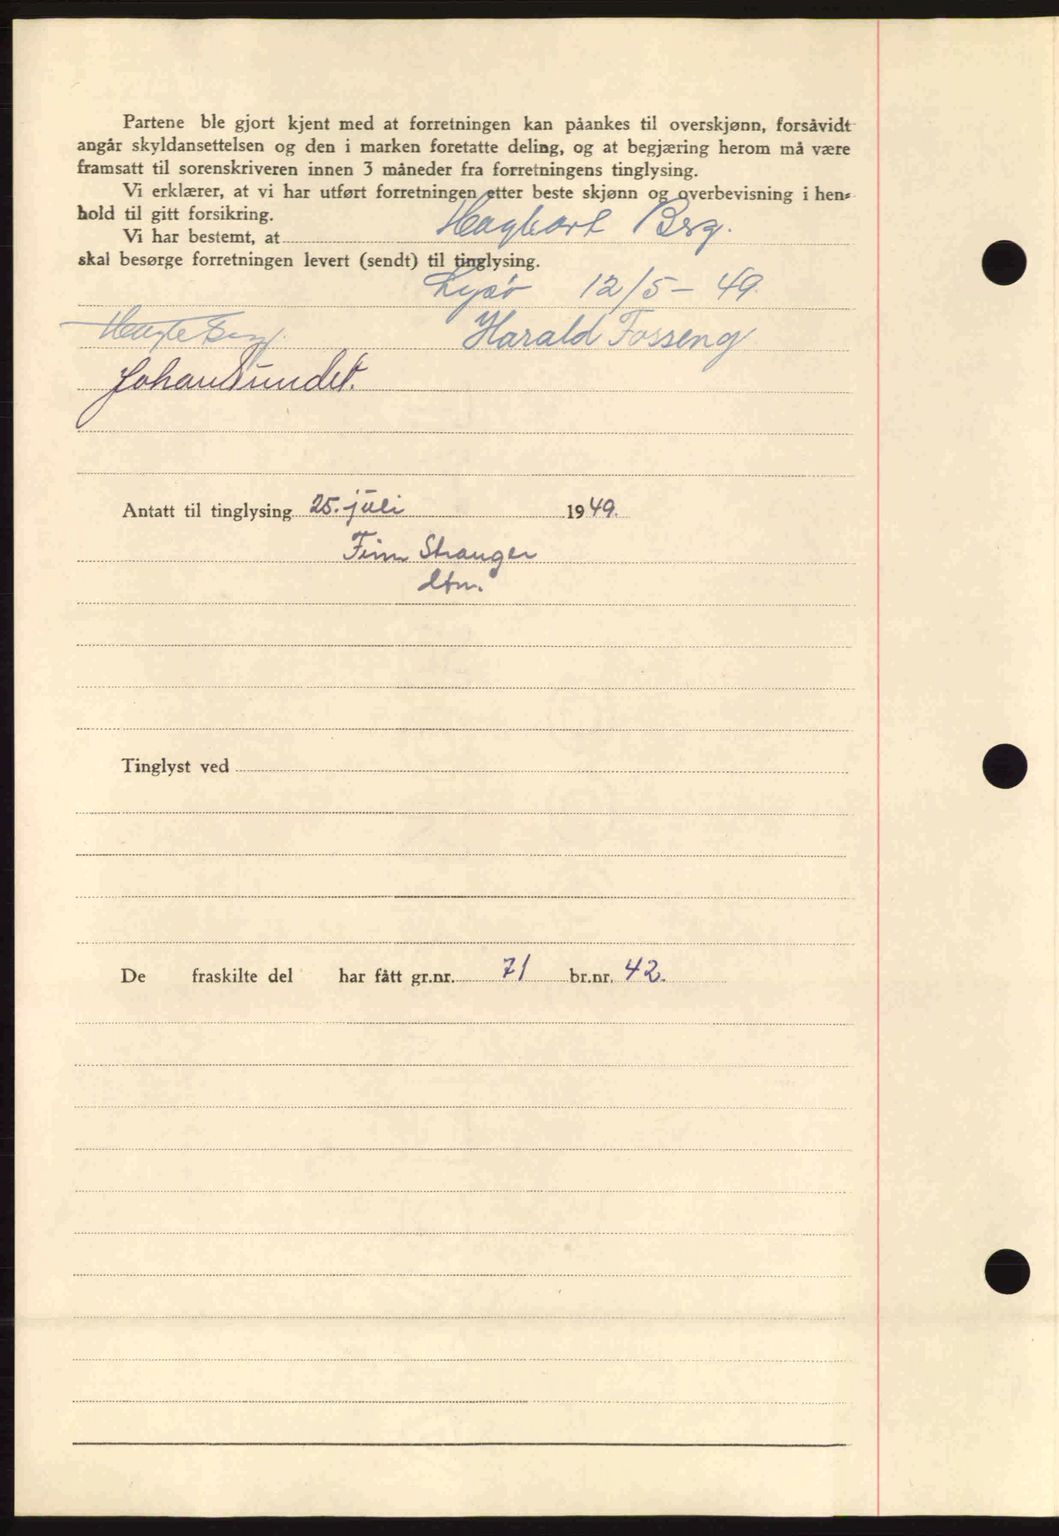 Partene ble gjort kjent med at forretningen kan påankes til overskjønn, forsåvidt
angår skyldansettelsen og den i marken foretatte deling, og at begjæring herom må være
framsatt til sorenskriveren innen 3 måneder fra forretningens tinglysing.
Vi erklærer, at vi har utført forretningen etter beste skjønn og overbevisning i hen-
hold til gitt forsikring.
Vi har bestemt, at Hagbart Berg.
skal besørge forretningen levert (sendt) til tinglysing.
Lysø 12/5 - 49.
Harald Fosseng
Johan Sundet.
Antatt til tinglysing 25. juli 1949.
Finn Stranger
dfm.
Tinglyst ved
De fraskilte del har fått gr.nr. 71 br.nr. 42.